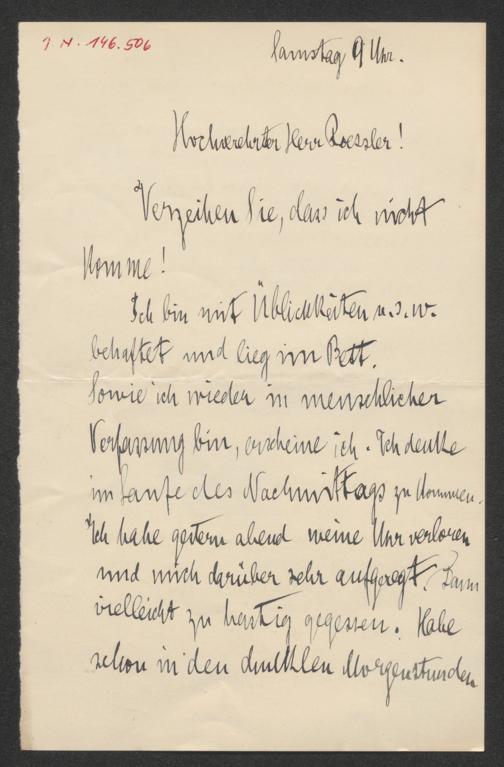 I N. 146.506
Samstag 9 Uhr.
Hochverehrter Herr Roessler!
Verzeihen Sie, dass ich nicht
komme!
Ich bin mit Üblichkeiten u.s.w.
behaftet und lieg im Bett.
Sowie ich wieder in menschlicher
Verfassung bin, erscheine ich. Ich denke
im Laufe des Nachmittags zu kommen.
Ich habe gestern abend meine Uhr verloren
und mich darüber sehr aufgeregt. Dann
vielleicht zu hastig gegessen. Habe
schon in den dunklen Morgenstunden